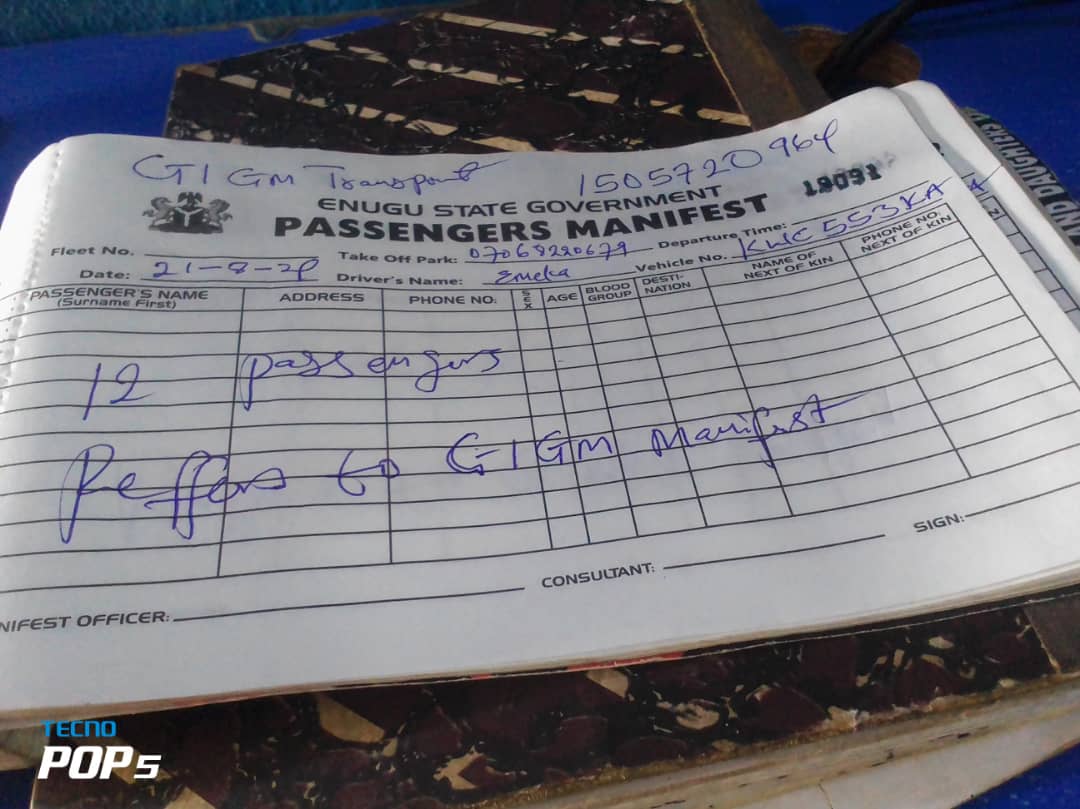 GIGM Transport
1505720964
18091
ENUGU STATE GOVERNMENT
PASSENGERS MANIFEST
Fleet No. Take Off Park: 07068220679 Departure Time:
Date: 21-8-2 Driver's Name: Emeka Vehicle No. KWC 553XA
PASSENGER'S NAME (Surname First) ADDRESS PHONE NO: SEX AGE BLOOD GROUP DESTI-NATION NAME OF NEXT OF KIN PHONE NO. NEXT OF KIN
12 passengers
Reffers to GIGM Manifest
NIFEST OFFICER: CONSULTANT: SIGN:
TECNO
POP5